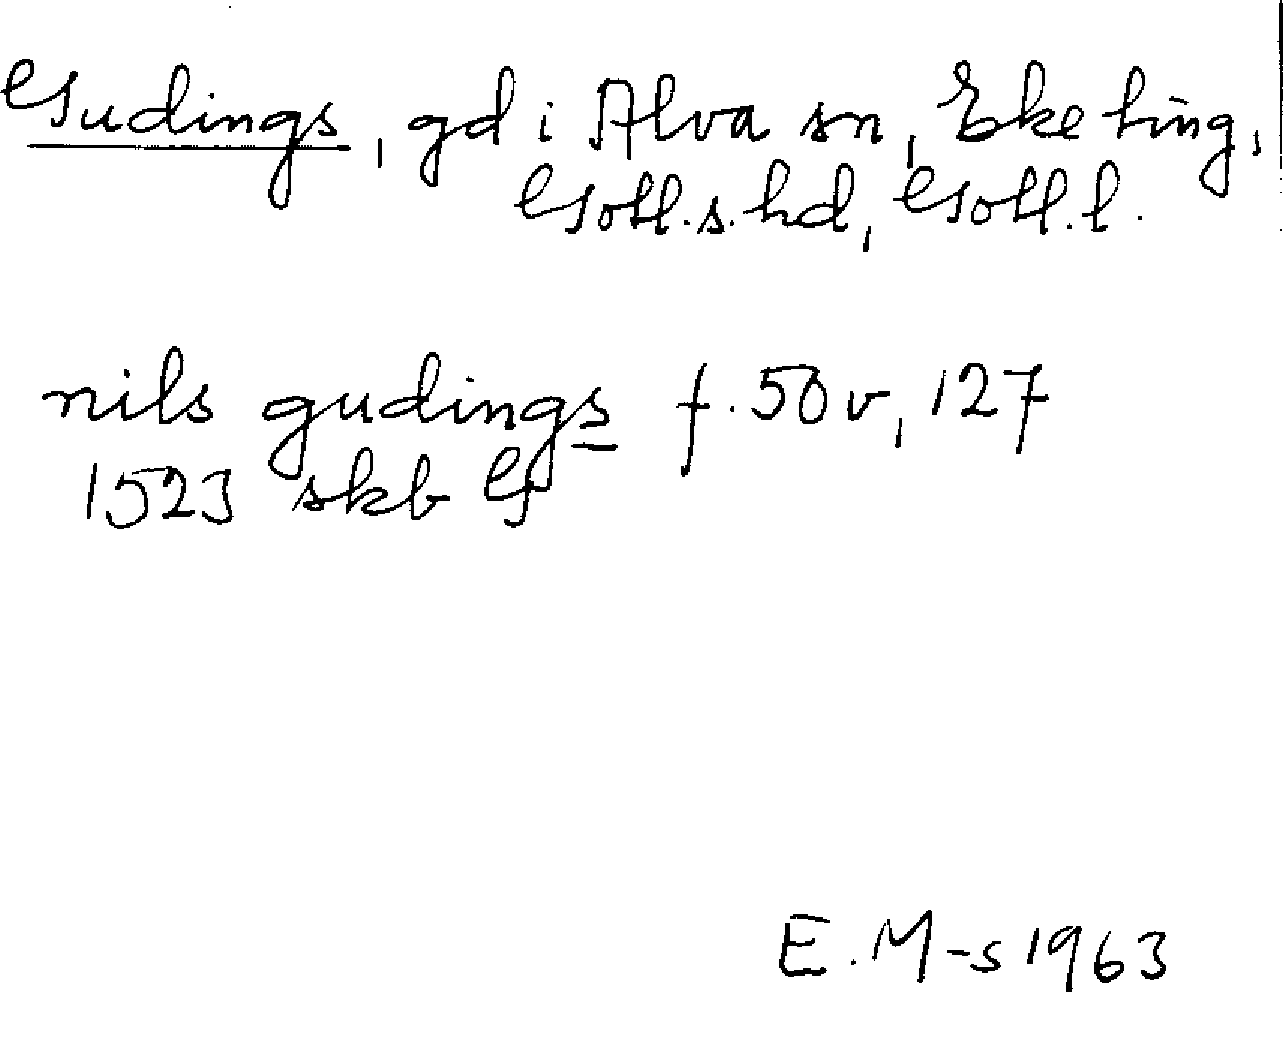 Gudings, gd i Alva sn, Eke ting,
Gotl. s. hd, Gotl. l.
nils gudings f. 50 v, 127
1523 skb G
E. M-s 1963